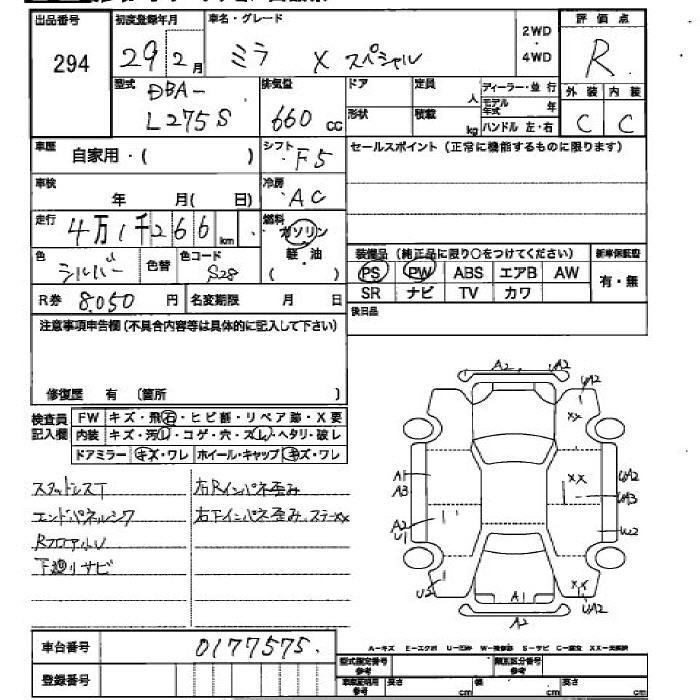 出品番号 初度登録年月 車名・グレード 2WD・4WD 評価点
294 29 2月 ミラ X スペシャル R
型式 排気量 ドア 定員 人 ディーラー・並 行 外装 内装
DBA-L275S 660 cc 形状 積載 kg モデル年式 年 ハンドル 左・右 C C
車歴 自家用・( ) シフト ・F5 セールスポイント(正常に機能するものに限ります)
車検 年 月( 日) 冷房 ・AC
走行 4万1千266 km 燃料 ガソリン 軽・油 ( )
装備品(純正品に限り○をつけてください) 新車保証書
色 シルバー 色替 色コード S28 PS PW ABS エアB AW 有・無
R券 8.050 円 名変期限 月 日 SR ナビ TV カワ
注意事項申告欄(不具合内容等は具体的に記入して下さい) 後日品
修復歴 有 〔箇所 〕
検査員記入欄 FW キズ・飛石・ヒビ割・リペア跡・X要
内装 キズ・汚し・コゲ・穴・スレ・ヘタリ・破レ
ドアミラー キズ・ワレ ホイール・キャップ キズ・ワレ
スタッドレスT 右Rインパネ歪み
エンドパネルシワ 右Fインパネ歪み、ステーXX
RフロアムU
下廻りサビ
A2 UA2
UA2
XX
A1 A3 XX UA2
UA3
A2 U1 U2
U2 XX UA2
A1
A2
車台番号 0177575.
A-キズ E-エクボ U-凹 W-補修跡 S-サビ C-腐食 XX-交換済
登録番号 型式指定番号 参考 類別区分番号 参考
車庫証明用 参考 長さ cm 幅 cm 高さ cm